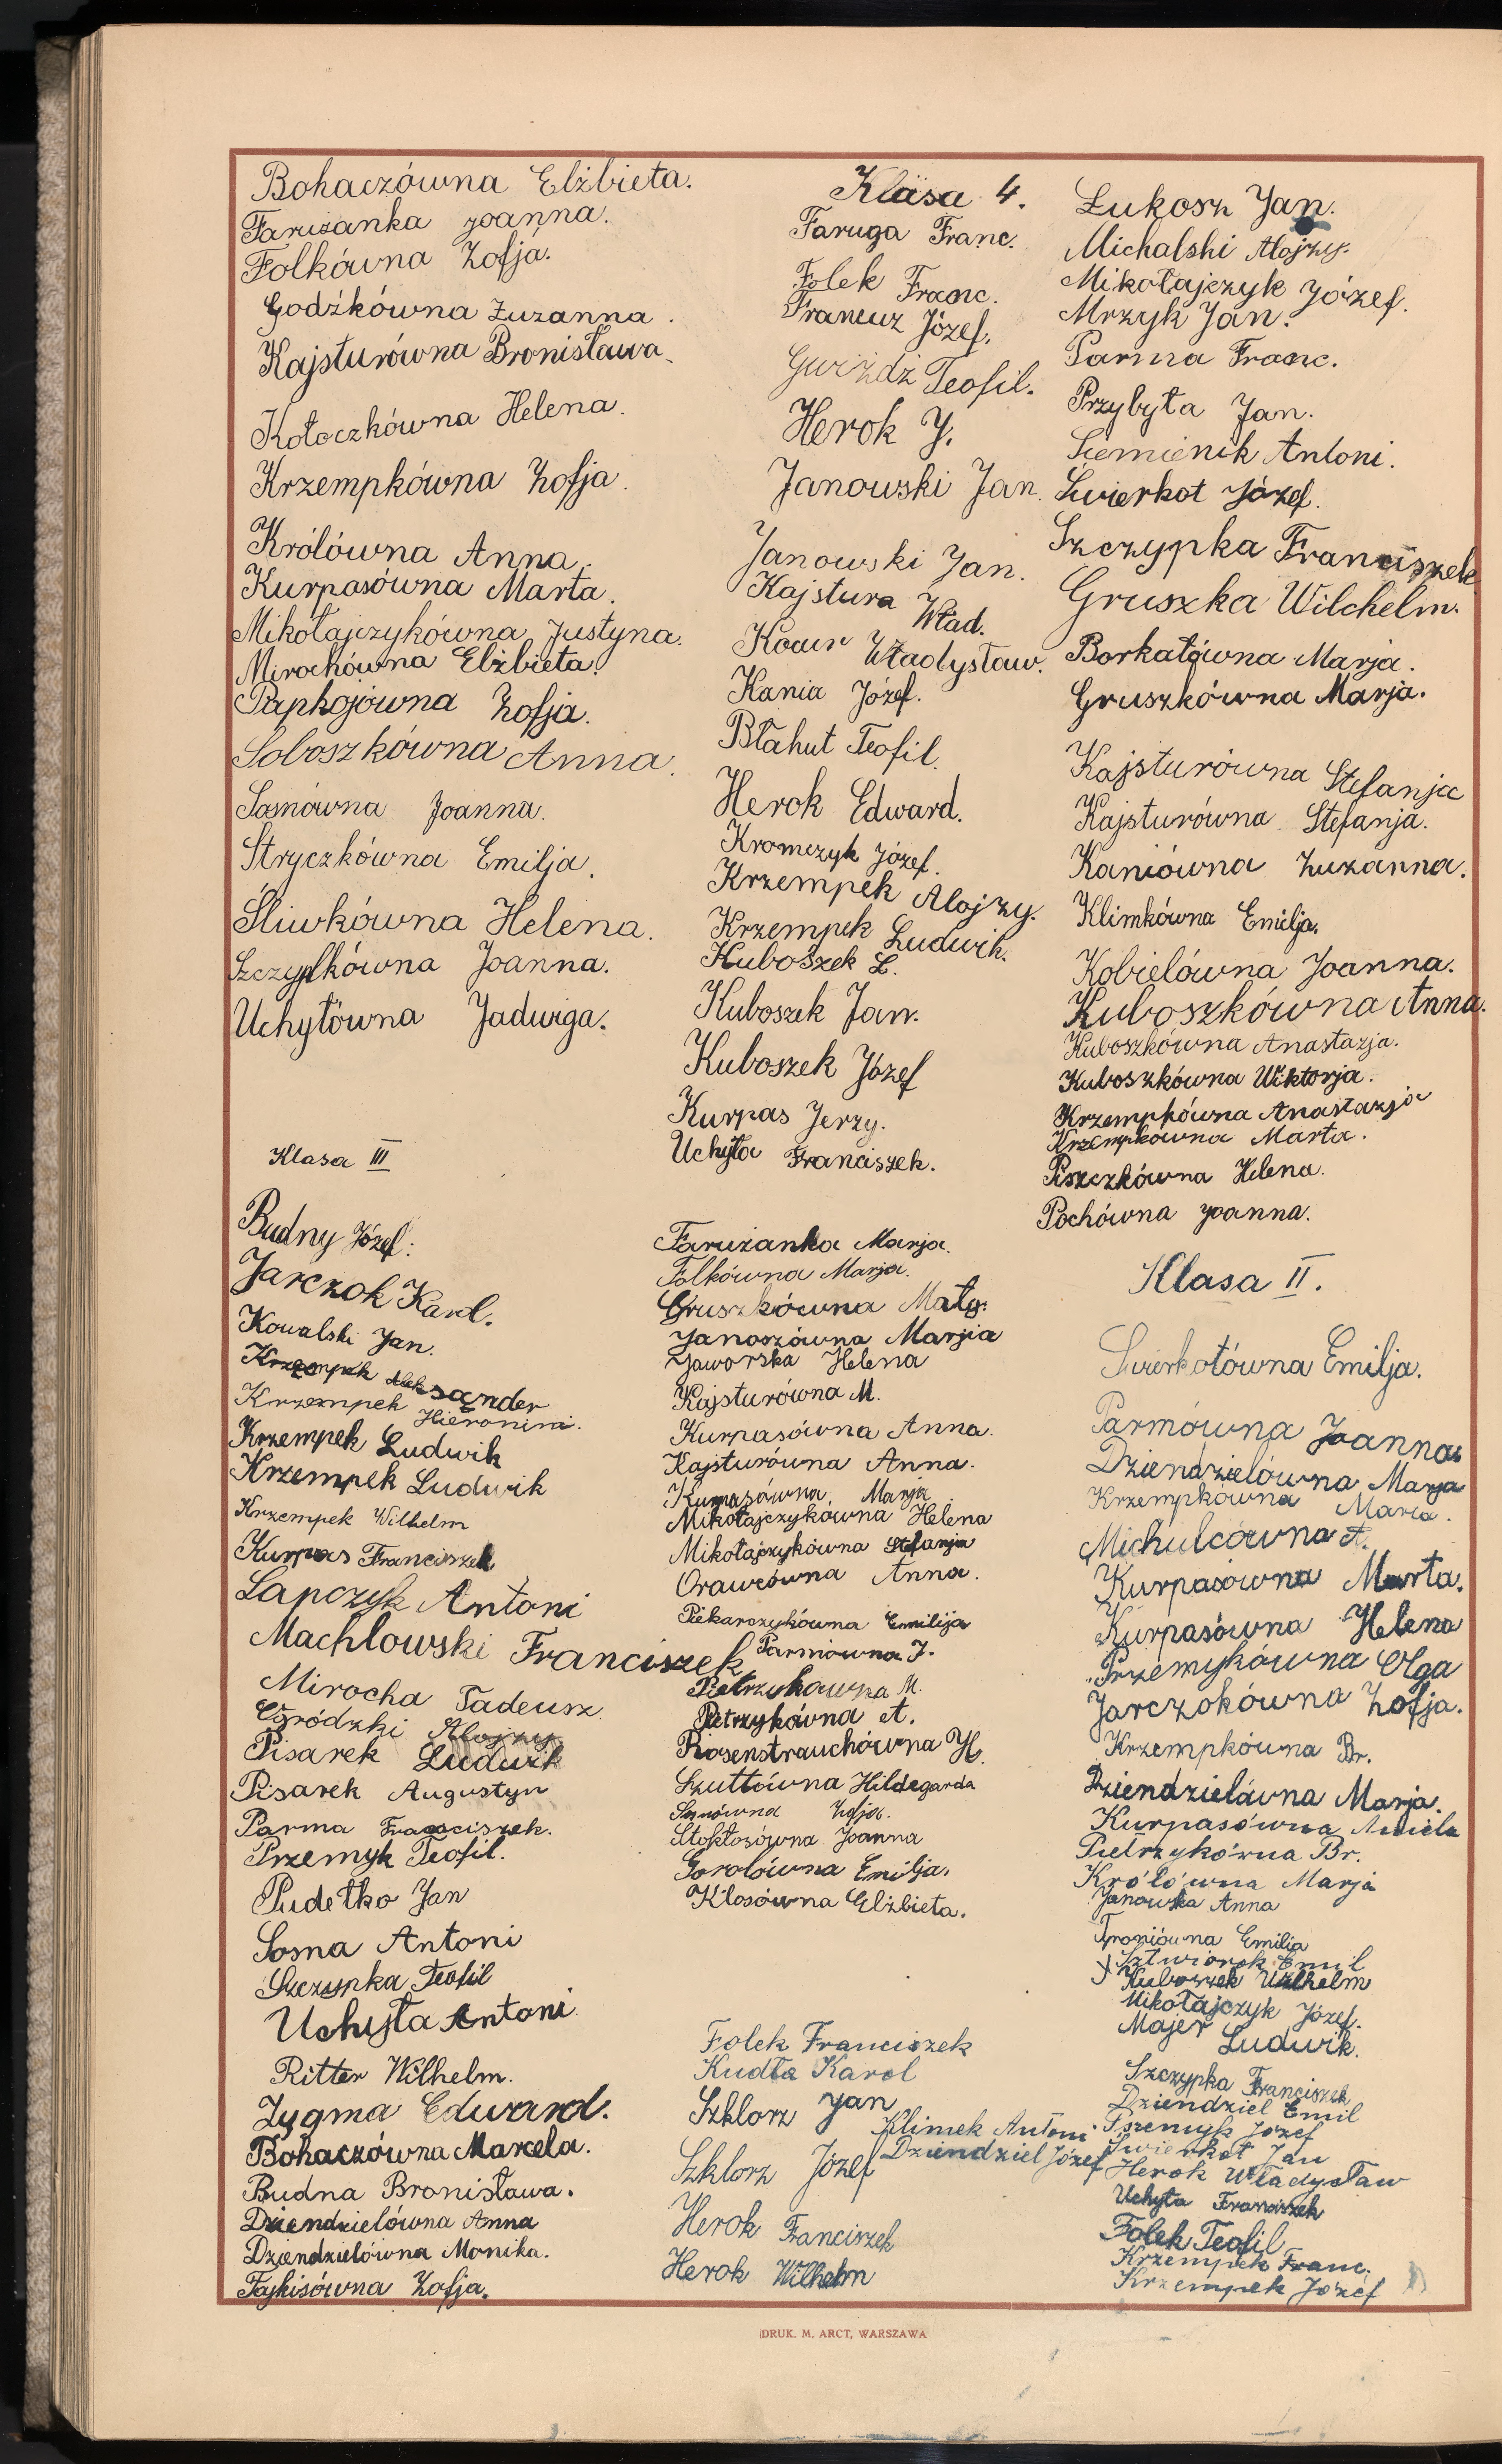 Bohaczówna Elżbieta.
Farużanka Joanna.
Folkówna Zofja.
Godźkówna Zuzanna.
Kajsturówna Bronisława.
Kołoczkówna Helena.
Krzempkówna Zofja.
Królówna Anna.
Kurpasówna Marta.
Mikołajczykówna Justyna.
Mirochówna Elżbieta.
Paphojówna Zofja.
Soboszkówna Anna.
Sosnówna Joanna.
Stryczkówna Emilja.
Śliwkówna Helena.
Szczypkówna Joanna.
Uchyłówna Jadwiga.
Klasa III
Budny Józef.
Jarczok Karol.
Kowalski Jan.
Krzempek Aleksander
Krzempek Hieronim.
Krzempek Ludwik
Krzempek Ludwik
Krzempek Wilhelm
Kurpas Franciszek
Łapczyk Antoni
Machlowski Franciszek
Mirocha Tadeusz
Ogródzki Alojzy
Pisarek Ludwik
Pisarek Augustyn
Parma Franciszek.
Przemyk Teofil.
Pudełko Jan
Sosna Antoni
Szczypka Teofil
Uchyła Antoni
Ritter Wilhelm.
Zygma Edward.
Bohaczówna Marcela.
Budna Bronisława.
Dziendzielówna Anna
Dziendzielówna Monika.
Fajkisówna Zofja.
Klasa 4.
Faruga Franc.
Folek Franc.
Francuz Józef.
Gwiżdż Teofil.
Herok J.
Janowski Jan.
Janowski Jan.
Kajstura Wład.
Władysław.
Kania Józef.
Błahut Teofil.
Herok Edward.
Kromczyk Józef.
Krzempek Alojzy.
Krzempek Ludwik.
Kuboszek L.
Kuboszek Jan.
Kuboszek Józef
Kurpas Jerzy.
Uchyła Franciszek.
Farużanka Marja.
Folkówna Marja.
Gruszkówna Małg.
Janoszówna Marjia
Jaworska Helena
Kajsturówna M.
Kurpasówna Anna.
Kajsturówna Anna.
Kurpasówna Marja
Mikołajczykówna Helena
Mikołajczykówna Stefanja
Orawcówna Anna.
Piekarczykówna Emilija
Parmówna J.
Pietrzykówna M.
Pietrzykówna A.
Rosenstrauchówna H.
Szuttówna Hildegarda
Sosnówna Zofja.
Stokłosówna Joanna
Gorolówna Emilja.
Kłosówna Elżbieta.
Folek Franciszek
Kudła Karol
Szklorz Jan
Klimek Antoni
Szklorz Józef
Dziendziel Józef
Herok Franciszek
Herok Wilhelm
Łukosz Jan.
Michalski Alojzy.
Mikołajczyk Józef.
Mrzyk Jan.
Parma Franc.
Przybyła Jan.
Siemienik Antoni.
Świerkot Józef.
Szczypka Franciszek
Gruszka Wilchelm.
Borkałówna Marja.
Gruszkówna Marja.
Kajsturówna Stefanja
Kajsturówna Stefanja.
Kaniówna Zuzanna.
Klimkówna Emilja.
Kobielówna Joanna.
Kuboszkówna Anna.
Kuboszkówna Anastazja.
Kuboszkówna Wiktorja.
Krzempkówna Anastazja
Krzempkówna Marta.
Piszczkówna Helena.
Pochówna Joanna.
Klasa II.
Świerkotówna Emilja.
Parmówna Joanna
Dziendzielówna Marja
Krzempkówna Maria.
Michulcówna A.
Kurpasówna Marta.
Kurpasówna Helena
Przemykówna Olga
Jarczokówna Zofja.
Krzempkówna Br.
Dziendzielówna Marja.
Kurpasówna Aniela
Pietrzykówna Br.
Królówna Marja
Janowska Anna
Froniówna Emilia
Sztwiorok Emil
Kuboszek Wilhelm
Mikołajczyk Józef.
Majer Ludwik.
Szczypka Franciszek
Dziendziel Emil
Pszemyk Józef
Świerkot Jan
Herok Władysław
Uchyła Franciszek
Folek Teofil
Krzempek Franc.
Krzempek Józef
DRUK. M. ARCT, WARSZAWA